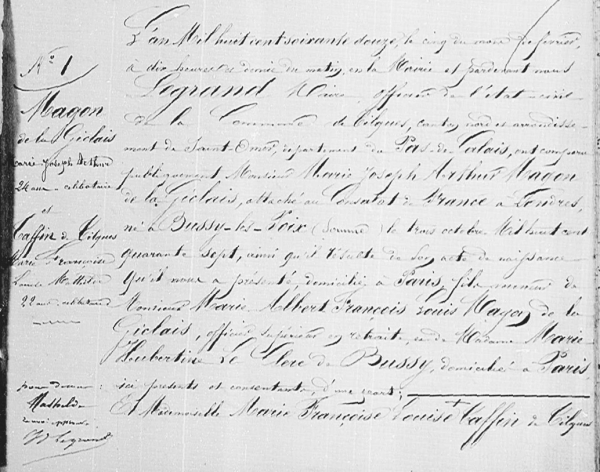 N.° 1
Magon
de la Giclais
Marie Joseph Arthur
24 ans - célibataire
et
Taffin de Tilques
Marie Françoise
Louise Mathilde
22 ans, célibataire
Mathilde
Legrand
L'an Mil huit cent soixante douze, le cinq du mois de février,
à dix heures et demie du matin, en la Mairie et pardevant nous
Legrand Maire, officier de l'état-civil
de la Commune de Tilques, canton nord et arrondisse-
ment de Saint-Omer, département du Pas-de-Calais, ont comparu
publiquement Monsieur Marie Joseph Arthur Magon
de la Giclais, attaché au Consulat de France à Londres,
né à Bussy-les-Poix (Somme) le trois octobre Mil huit cent
quarante sept, ainsi qu'il résulte de son acte de naissance
qu'il nous a présenté, domicilié à Paris, fils mineur de
Monsieur Marie Albert François Louis Magon de la
Giclais, officier supérieur en retraite, et de Madame Marie
Hubertine Le Clerc de Bussy, domiciliés à Paris
ici présents et consentants, d'une part;
Et Mademoiselle Marie Françoise Louise Taffin de Tilques